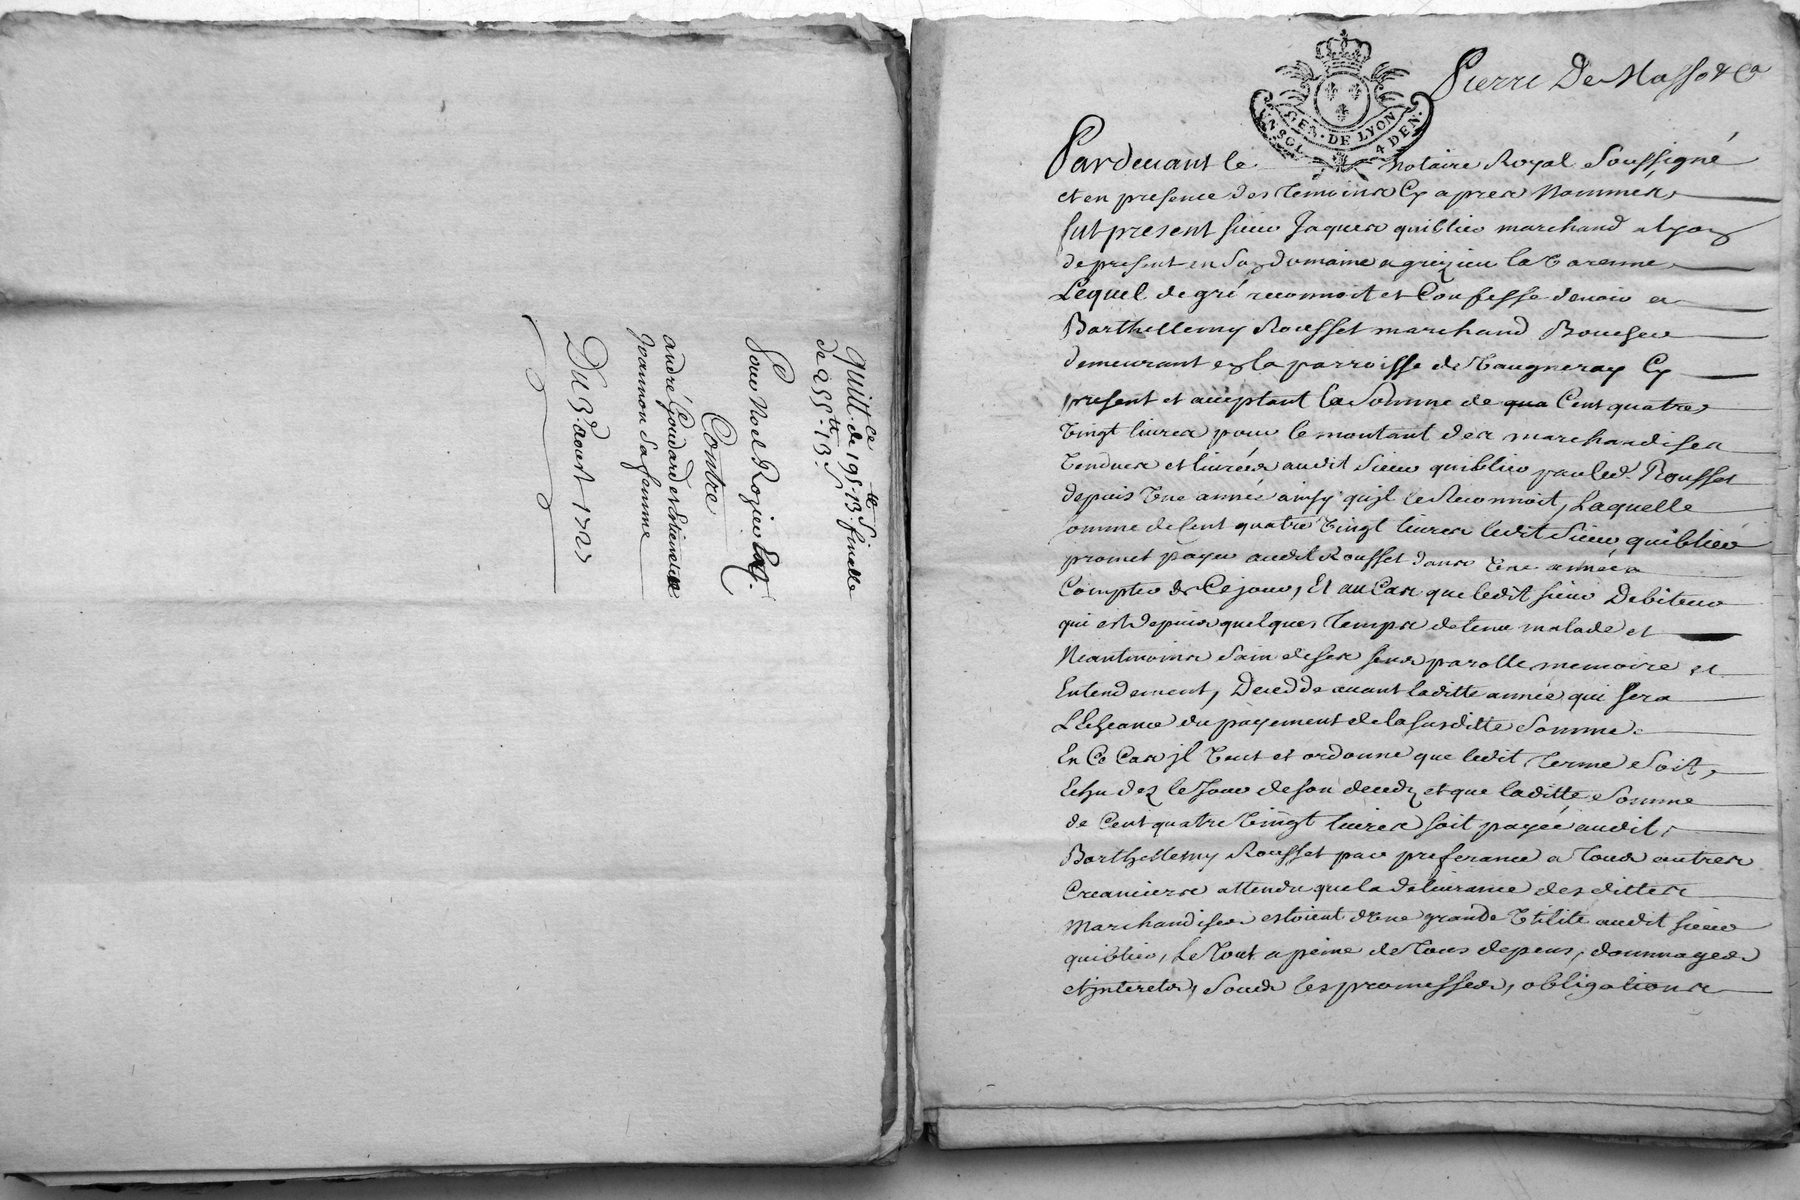 Quitt.ce de 195.tt 13.s finalle
de 255.tt 13.s
Pour Noel Rozier
Contre
andré Goudard et Estiennette
Joannon sa femme
Du 3.e aoust 1727
Pierre De Masso & Ca
GEN. DE LYON
UN SOL 4 DEN.
Pardevant le notaire Royal Soussigné
et en presence des Temoins Cy apres Nommés,
fut present sieur Jaques quiblier marchand a Lyon
de present en son domaine a greizieu la Varenne,
Lequel de gré reconnoit et Confesse devoir a
Barthellemy Rousset marchand Boucher
demeurant en la parroisse de Vaugneray Cy
present et acceptant la Somme de qua Cent quatre
Vingt livres pour le montant des marchandises
Vendues et livrées audit Sieur quiblier par led. Rousset
depuis Une année ainsy qu'il le Reconnoit, Laquelle
somme de Cent quatre Vingt livres ledit Sieur quiblier
promet payer audit Rousset dans Une année a
Compter de Ce jour, Et au Cas que ledit sieur Debiteur
qui est depuis quelques Temps detenu malade et
Neantmoins Sain de ses sens parolle memoire et
Entendement, Decedde avant laditte année qui sera
L'Echeance du payement de la susditte Somme
En Ce Cas jl Veut et ordonne que ledit Terme Soit,
Echu dez le Jour de son decedz et que laditte Somme
de Cent quatre Vingt livres soit payée audit
Barthellemy Rousset par preferance a Tous autres
Creanciers attendu que la delivrance des dittes
Marchandises estoient d'Une grande Utilité audit sieur
quiblier, Le Tout a peine de Tous depens, dommages
et jnterets, Sous les promesses, obligations